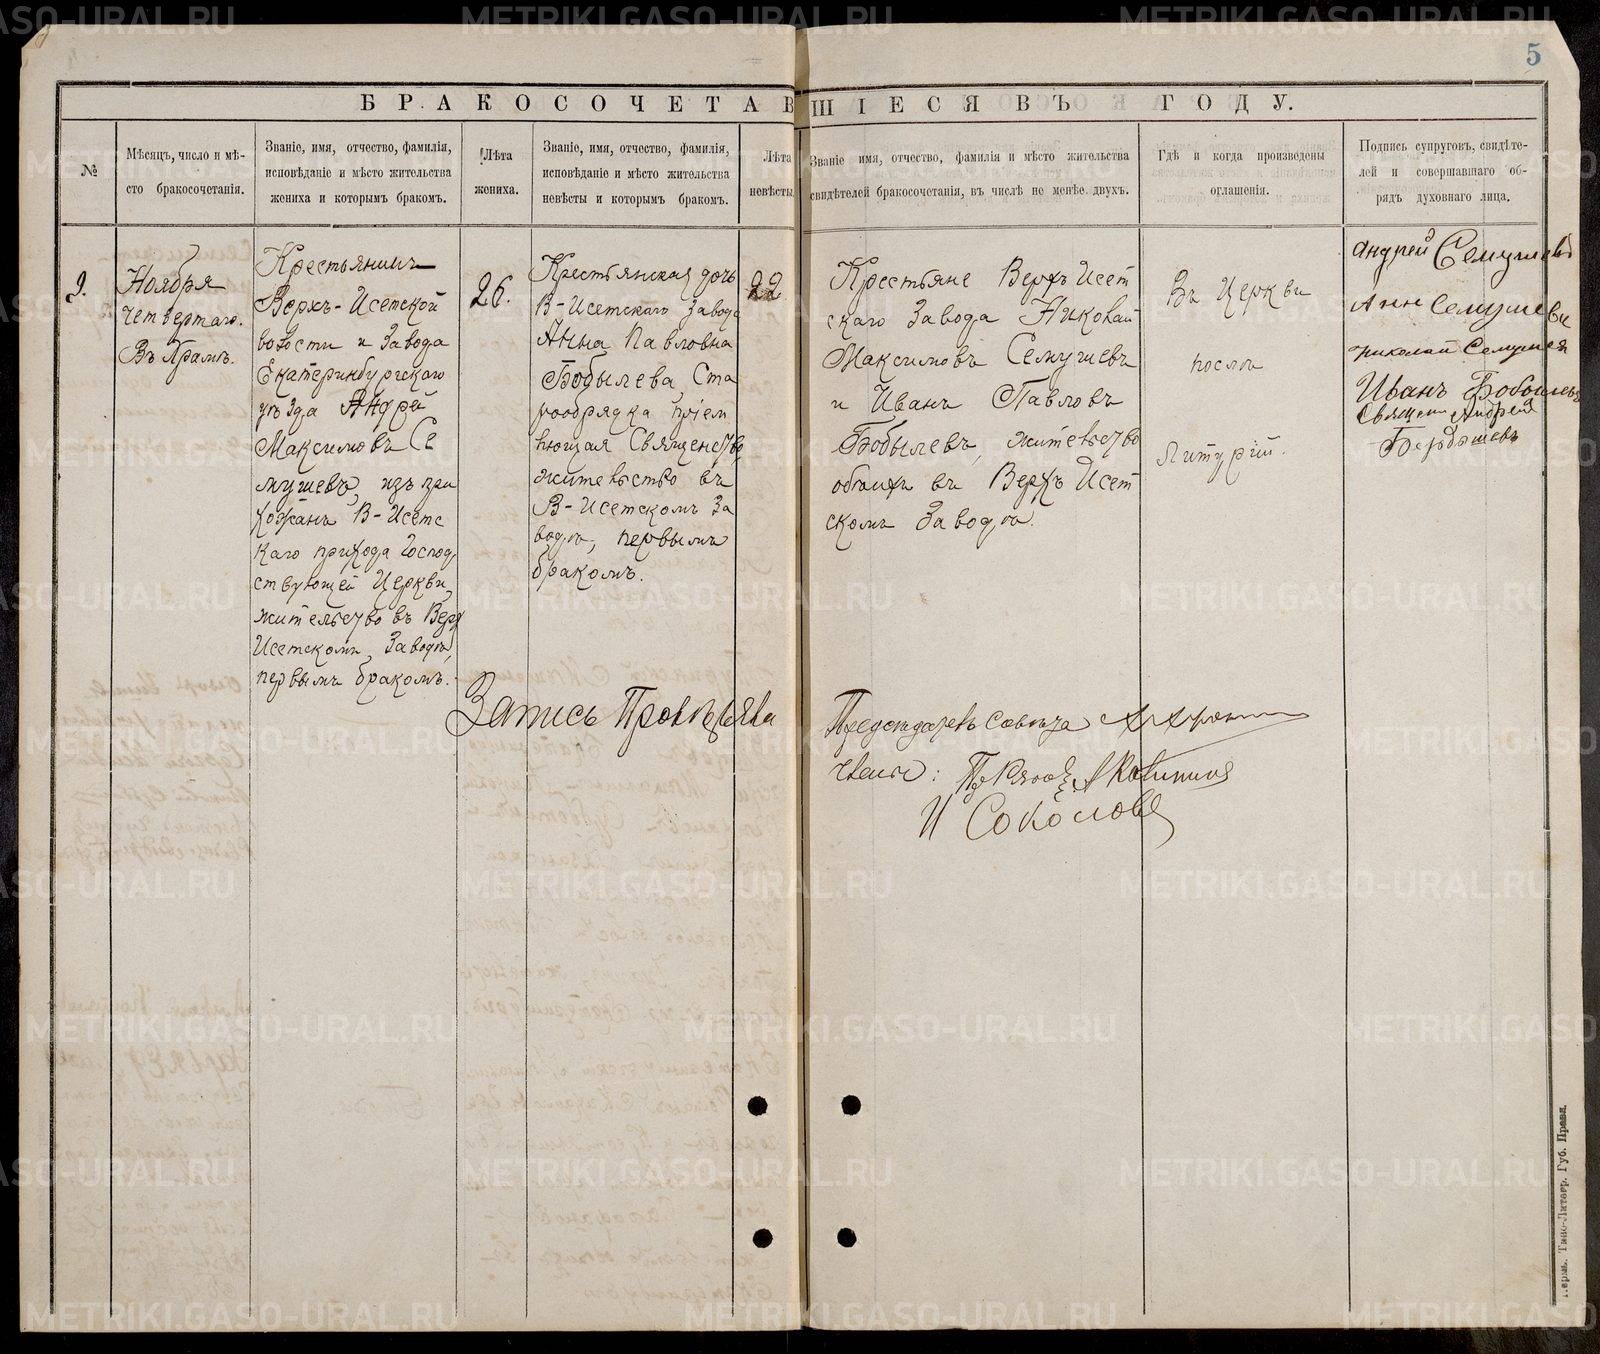 5
БРАКОСОЧЕТАВШІЕСЯ ВЪ ГОДУ.
№
Мѣсяцъ, число и мѣ-
сто бракосочетанія.
Званіе, имя, отчество, фамилія,
исповѣданіе и мѣсто жительства
жениха и которымъ бракомъ.
Лѣта
жениха.
Званіе, имя, отчество, фамилія,
исповѣданіе и мѣсто жительства
невѣсты и которымъ бракомъ.
Лѣта
невѣсты
Званіе имя, отчество, фамилія и мѣсто жительства
свидѣтелей бракосочетанія, въ числѣ не менѣе двухъ.
Гдѣ и когда произведены
оглашенія.
Подпись супруговъ, свидѣте-
лей и совершавшаго об-
рядъ духовнаго лица.
9.
Ноября
четвертаго.
Въ Храмѣ.
Крестьянинъ
Верхъ-Исетской
волости и Завода
Екатеринбургскаго
уѣзда Андрей
Максимовъ Се
мушевъ, изъ при
хожанъ В-Исетс
каго прихода Господ
ствующей Церкви,
жительство въ Верх
Исетскомъ Заводѣ,
первымъ бракомъ.
26.
Крестьянская дочь
В-Исетскаго Завода
Анна Павловна
Бобылева, Ста
рообрядка, пріем
лющая Священство,
жительство въ
В-Исетскомъ За
водѣ, первымъ
бракомъ.
22
Крестьяне Верхъ Исет
скаго Завода Николай
Максимовъ Семушевъ
и Иванъ Павловъ
Бобылевъ, жительство
обоихъ въ Верхъ Исет
скомъ Заводѣ.
Въ Церкви
послѣ
Литургій.
Андрей Семушевъ
Анна Семушева
Николай Семушев
Иванъ Бобылевъ
Священ. Андрей
Бердышевъ
Запись Провѣряли
Председатель Совѣта
Члены:
И Соколовъ
Пермь. Типо-Литогр. Губ. Правл.
METRIKI.GASO-URAL.RU